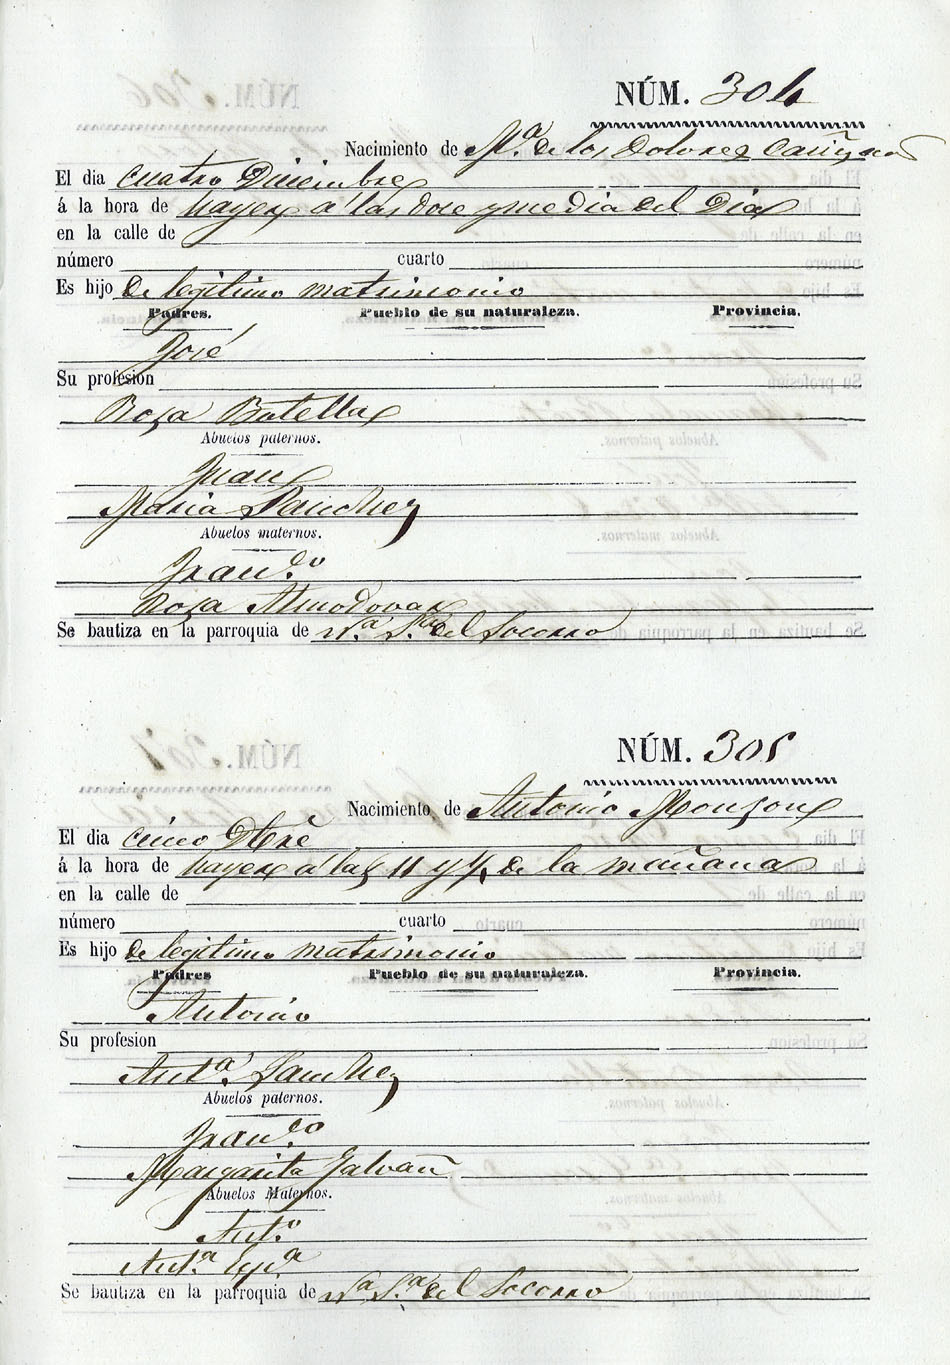 NÚM. 304
Nacimiento de Mª. de los Dolores
El dia cuatro Diciembre
á la hora de hayer a las doce y media del Dia
en la calle de
número cuarto
Es hijo de legitimo matrimonio
Padres. Pueblo de su naturaleza. Provincia.
José
Su profesion
Rosa Botella
Abuelos paternos.
Juan
Maria Sanchez
Abuelos maternos.
Franco.
Rosa Almodovar
Se bautiza en la parroquia de Nª. Sra. del Socorro
NÚM. 305
Nacimiento de Antonio Monzon
El dia cinco Dbre
á la hora de hayer a las 11 y ½ de la mañana
en la calle de
número cuarto
Es hijo de legitimo matrimonio
Padres Pueblo de su naturaleza. Provincia.
Antonio
Su profesion
Antª. Sanchez
Abuelos paternos.
Franco.
Margarita Galvañ
Abuelos Maternos.
Antº.
Antª.
Se bautiza en la parroquia de Nª. Sª. del Socorro